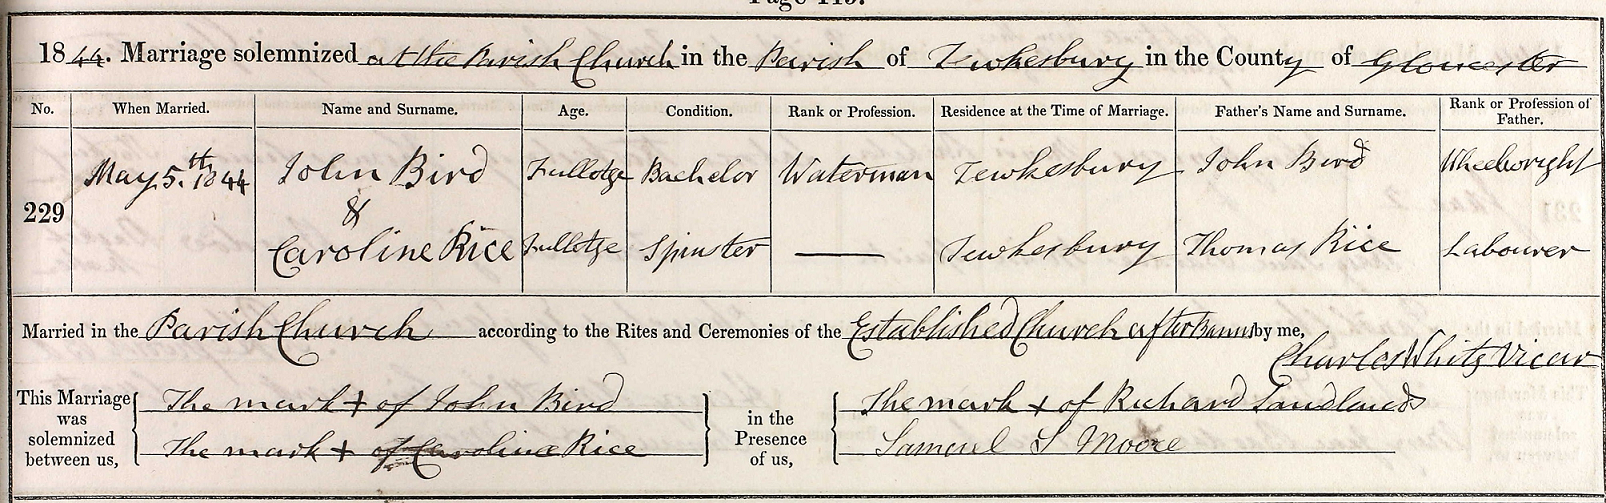 Page 115.
1844. Marriage solemnized at the Parish Church in the Parish of Tewkesbury in the County of Gloucester
No. When Married. Name and Surname. Age. Condition. Rank or Profession. Residence at the Time of Marriage. Father's Name and Surname. Rank or Profession of Father.
229 May 5.th 1844 John Bird Full age Bachelor Waterman Tewkesbury John Bird Wheelwright
&
Caroline Rice Full age Spinster — Tewkesbury Thomas Rice Labourer
Married in the Parish Church according to the Rites and Ceremonies of the Established Church after Banns by me,
Charles White Vicar
This Marriage was solemnized between us, The mark + of John Bird
The mark + of Caroline Rice
in the Presence of us, The mark + of Richard Sandlands
Samuel S Moore